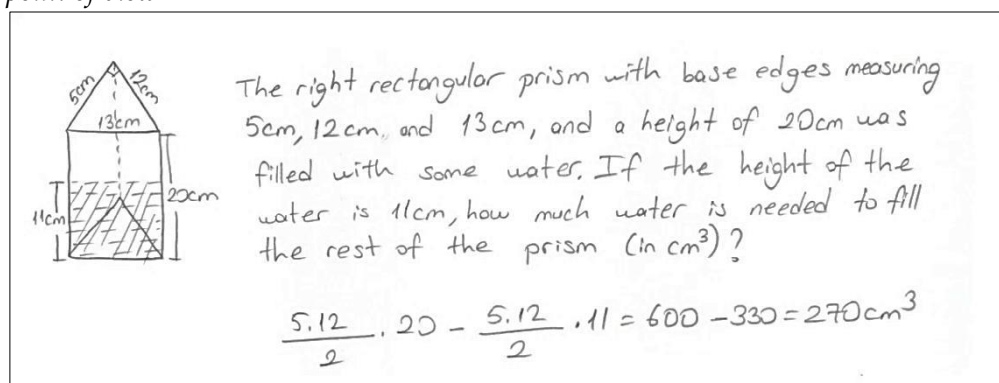 point of view
5cm
12cm
13cm
20cm
11cm
The right rectangular prism with base edges measuring
5cm, 12cm, and 13cm, and a height of 20cm was
filled with some water. If the height of the
water is 11cm, how much water is needed to fill
the rest of the prism (in cm³)?
5.12/2 . 20 - 5.12/2 . 11 = 600 - 330 = 270cm³